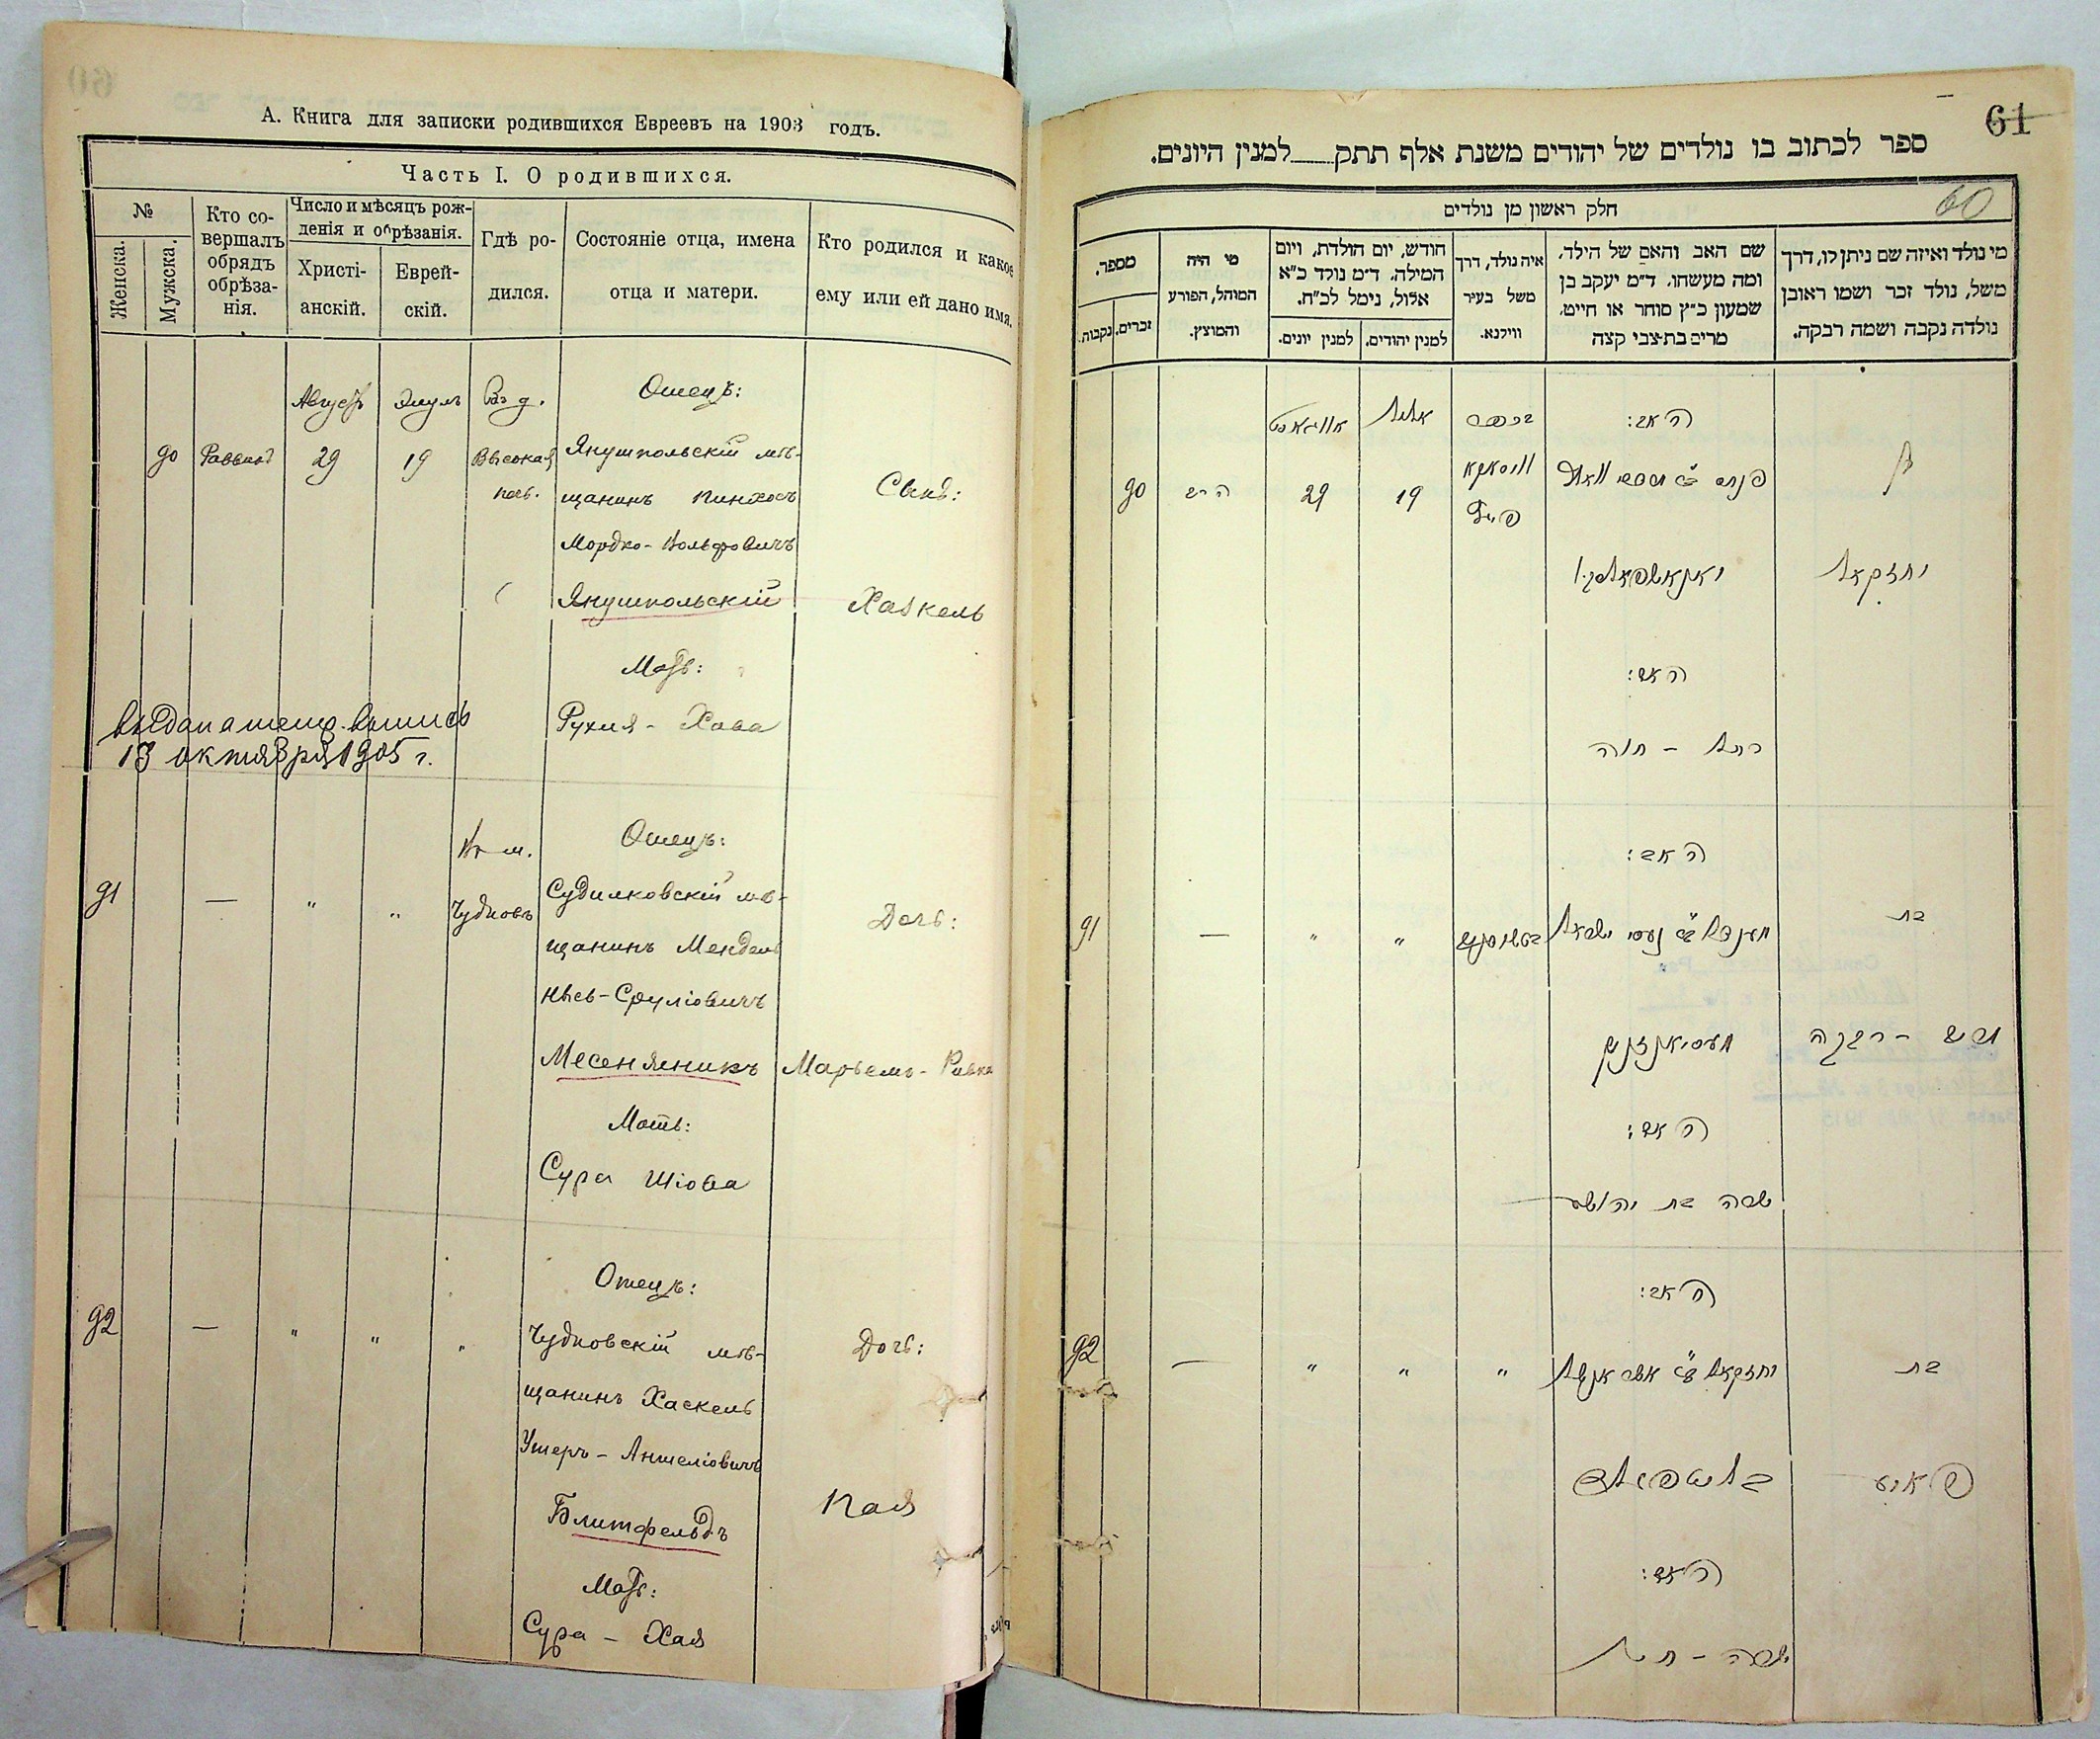 А. Книга для записки родившихся Евреевъ на 1903 годъ.
Часть I. О родившихся.
№
Женска.
Мужска.
Кто совершалъ обрядъ обрѣзанія.
Число и мѣсяцъ рожденія и обрѣзанія.
Христіанскій.
Еврейскій.
Гдѣ родился.
Состояніе отца, имена отца и матери.
Кто родился и какое ему или ей дано имя.
Августъ Элулъ
Отецъ:
90 Раввинъ 29 19 Высокая Янушпольскій мѣ-
печ. щанинъ Пинхосъ Сынъ:
Мордко-Вольфовичъ
Янушпольскій Хаскель
Мать:
Рухля - Хава
выдана метр. выпись
13 октября 1905 г.
Въ м. Отецъ:
91 — " " Чудновъ Судилковскій мѣ- Дочь:
щанинъ Мендель
-Сруліовичъ
Месенжникъ Марьемъ - Ривка
Мать:
Сура Шіова
Отецъ:
92 — " " " Чудновскій мѣ- Дочь:
щанинъ Хаскель
Ушеръ - Аншеліовичъ
Блитфельдъ Пая
Мать:
Сура - Хая
61
ספר לכתוב בו נולדים של יהודים משנת אלף תתק___למנין היונים.
60
חלק ראשון מן נולדים
מי נולד ואיזה שם ניתן לו, דרך
משל, נולד זכר ושמו ראובן
נולדה נקבה ושמה רבקה.
שם האב והאם של הילד,
ומה מעשהו. ד״מ יעקב בן
שמעון כ״ץ סוחר או חייט,
מרים בת־צבי קצה
איה נולד, דרך
משל בעיר
ווילנא.
חודש, יום הולדת, ויום
המילה. ד״מ נולד כ״א
אלול, נימל לכ״ח.
למנין יהודים.
למנין יונים.
מי היה
המוהל, הפורע
והמוצץ.
מספר.
זכרים.
נקבות.
האב:
אלול אויגוסט
בן
90 29 19
יחזקאל
האם:
רחל - חוה
האב:
בת
91 — " "
מרים - רבקה
האם:
שרה בת יהושע
האב:
בת
92 — " " "
האם:
שרה - חיה